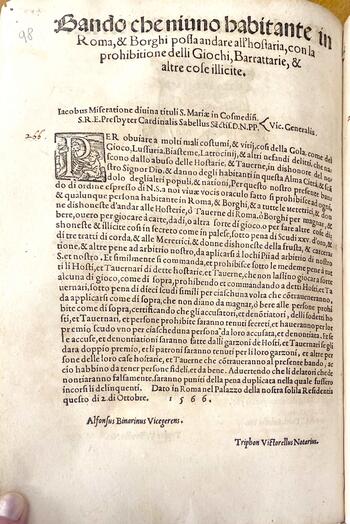 98
Bando che niuno habitante in
Roma, & Borghi possa andare all'hostaria, con la
prohibitione delli Giochi, Barrattarie, &
altre cose illicite.
Iacobus Miseratione diuina tituli S. Mariæ in Cosmedin.
S.R.E. Presbyter Cardinalis Sabellus S.D.N.PP. Vic. Generalis.
PER obuiare a molti mali costumi, & vitij, cosi della Gola, come del
Gioco, Lussuria, Biasteme, Latrocinij, & altri nefandi delitti, che na-
scono dallo abuso delle Hostarie, & Tauerne, in dishonore del no-
stro Signor Dio, & danno degli habitanti in questa Alma Città, & scã
dolo degli altri populi, & nationi, Per questo nostro presente Ban-
do di ordine espresso di N.S. a noi viuæ vocis oraculo fatto si prohibisce ad ogni,
& qualunque persona habitante in Roma, & Borghi, & a tutte le meretrici, & don
ne dishoneste d'andare alle Hosterie, ò Tauerne di Roma, ò Borghi per magnar, &
bere, ouero per giocare à carte, dadi, o altra sorte di gioco, o per fare altre cose
dishoneste & illicite cosi in secreto come in palese, sotto pena di Scudi xxv. d'oro, &
di tre tratti di corda, & alle Meretrici, & donne dishoneste della frusta, & carcera-
tione, & altre pene ad arbitrio nostro, da applicarsi à lochi Pii ad arbitrio di nostro
S. et nostro. Et similmente si commanda, et prohibisce sotto le medeme pene à tut
ti li Hosti, et Tauernari di dette hostarie, et Tauerne, che non lassino giocar à sorte
alcuna di gioco, come di sopra, prohibendo et commandando a detti Hosti, et Ta
uernari, sotto pena di dieci scudi simili per ciaschuna volta che cõtraueneranno,
da applicarsi come di sopra, che non diano da magnar, ò bere alle persone prohi
bite come di sopra, certificando che gli accusatori, et denõtiatori, delli sodetti ho
sti, et Tauernari, et persone prohibite saranno tenuti secreti, et haueranno per lor
premio scudo vno per ciascheduna persona da loro accusata, et denontiata, Et se
le accuse, et denontiationi saranno fatte dalli garzoni de Hosti, et Tauernari se gli
dara doppio premio, et li patroni saranno tenuti per li loro garzoni, et altre per
sone delle loro case hostarie, et Tauerne che cõtraueneranno al presente bando, ac
cio habbino da tener persone fideli, et da bene. Aduertendo che li delatori che de
nontiaranno falsamente, saranno puniti della pena duplicata nella quale fussero
incorsi li delinquenti. Dato in Roma nel Palazzo della nostra solita Residentia
questo di 2. di Ottobre. 1566.
Alfonsus Binarinus Vicegerens.
Triphon Victorellus Notarius.